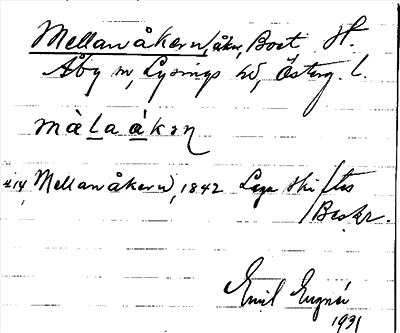 Mellanåkern, åker, Bost H.
Åby sn, Lysings hd, Österg. l.
màlaákɜn
Mellanåkern, 1842 Laga skiftes
Beskr.
Emil
1931